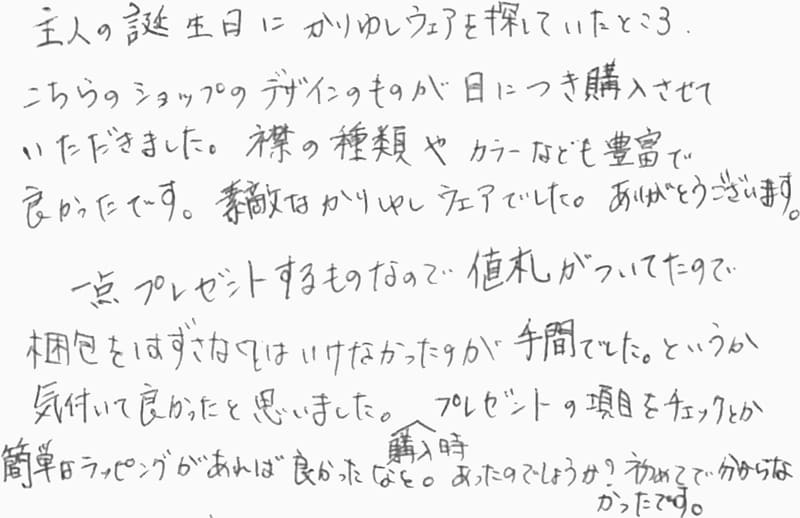 主人の誕生日にかりゆしウェアを探していたところ.
こちらのショップのデザインのものが目につき購入させて
いただきました。襟の種類やカラーなども豊富で
良かったです。素敵なかりゆしウェアでした。ありがとうございます。
一点プレゼントするものなので値札がついてたので
梱包をはずさなくてはいけなかったのが手間でした。というか
気付いて良かったと思いました。プレゼントの項目をチェックとか
簡単なラッピングがあれば良かったなと。購入時あったのでしょうか?初めてで分からな
かったです。